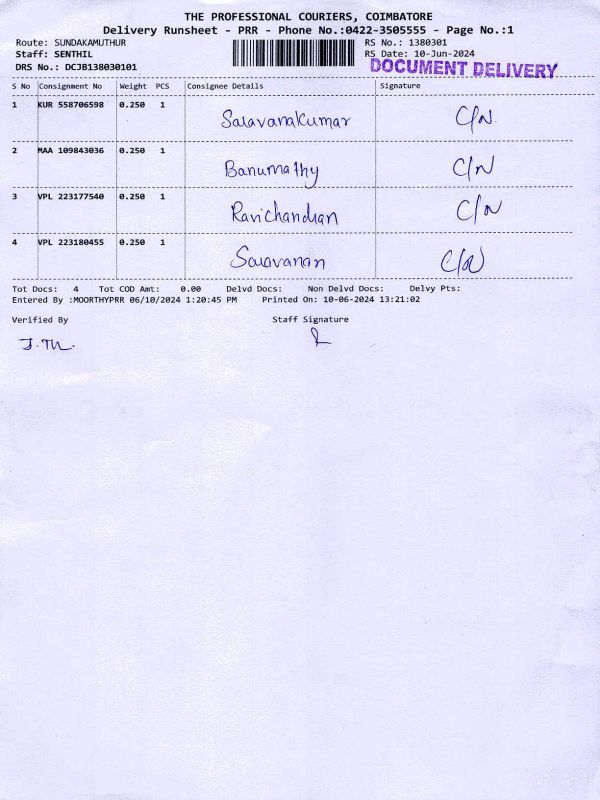 THE PROFESSIONAL COURIERS, COIMBATORE
Delivery Runsheet - PRR - Phone No.:0422-3505555 - Page No.:1
Route: SUNDAKAMUTHUR RS No.: 1380301
Staff: SENTHIL RS Date: 10-Jun-2024
DRS No.: DCJB138030101 DOCUMENT DELIVERY
S No Consignment No Weight PCS Consignee Details Signature
1 KUR 558706598 0.250 1 Saravanakumar C/N
2 MAA 109843036 0.250 1 Banumathy C/N
3 VPL 223177540 0.250 1 Ravichandran C/N
4 VPL 223180455 0.250 1 Saravanan C/N
Tot Docs: 4 Tot COD Amt: 0.00 Delvd Docs: Non Delvd Docs: Delvy Pts:
Entered By :MOORTHYPRR 06/10/2024 1:20:45 PM Printed On: 10-06-2024 13:21:02
Verified By Staff Signature